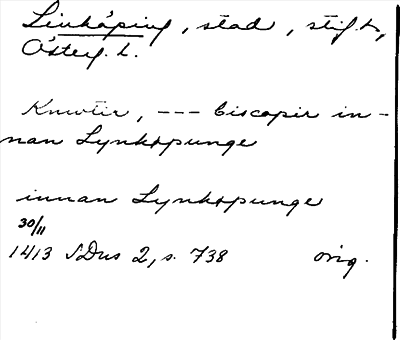 Linköping, stad, stift,
Österg. l.
Knwtir, --- biscopir in-
nan Lynkopunge
innan Lynkopunge
30/11
1413 SDns 2, s. 738 orig.